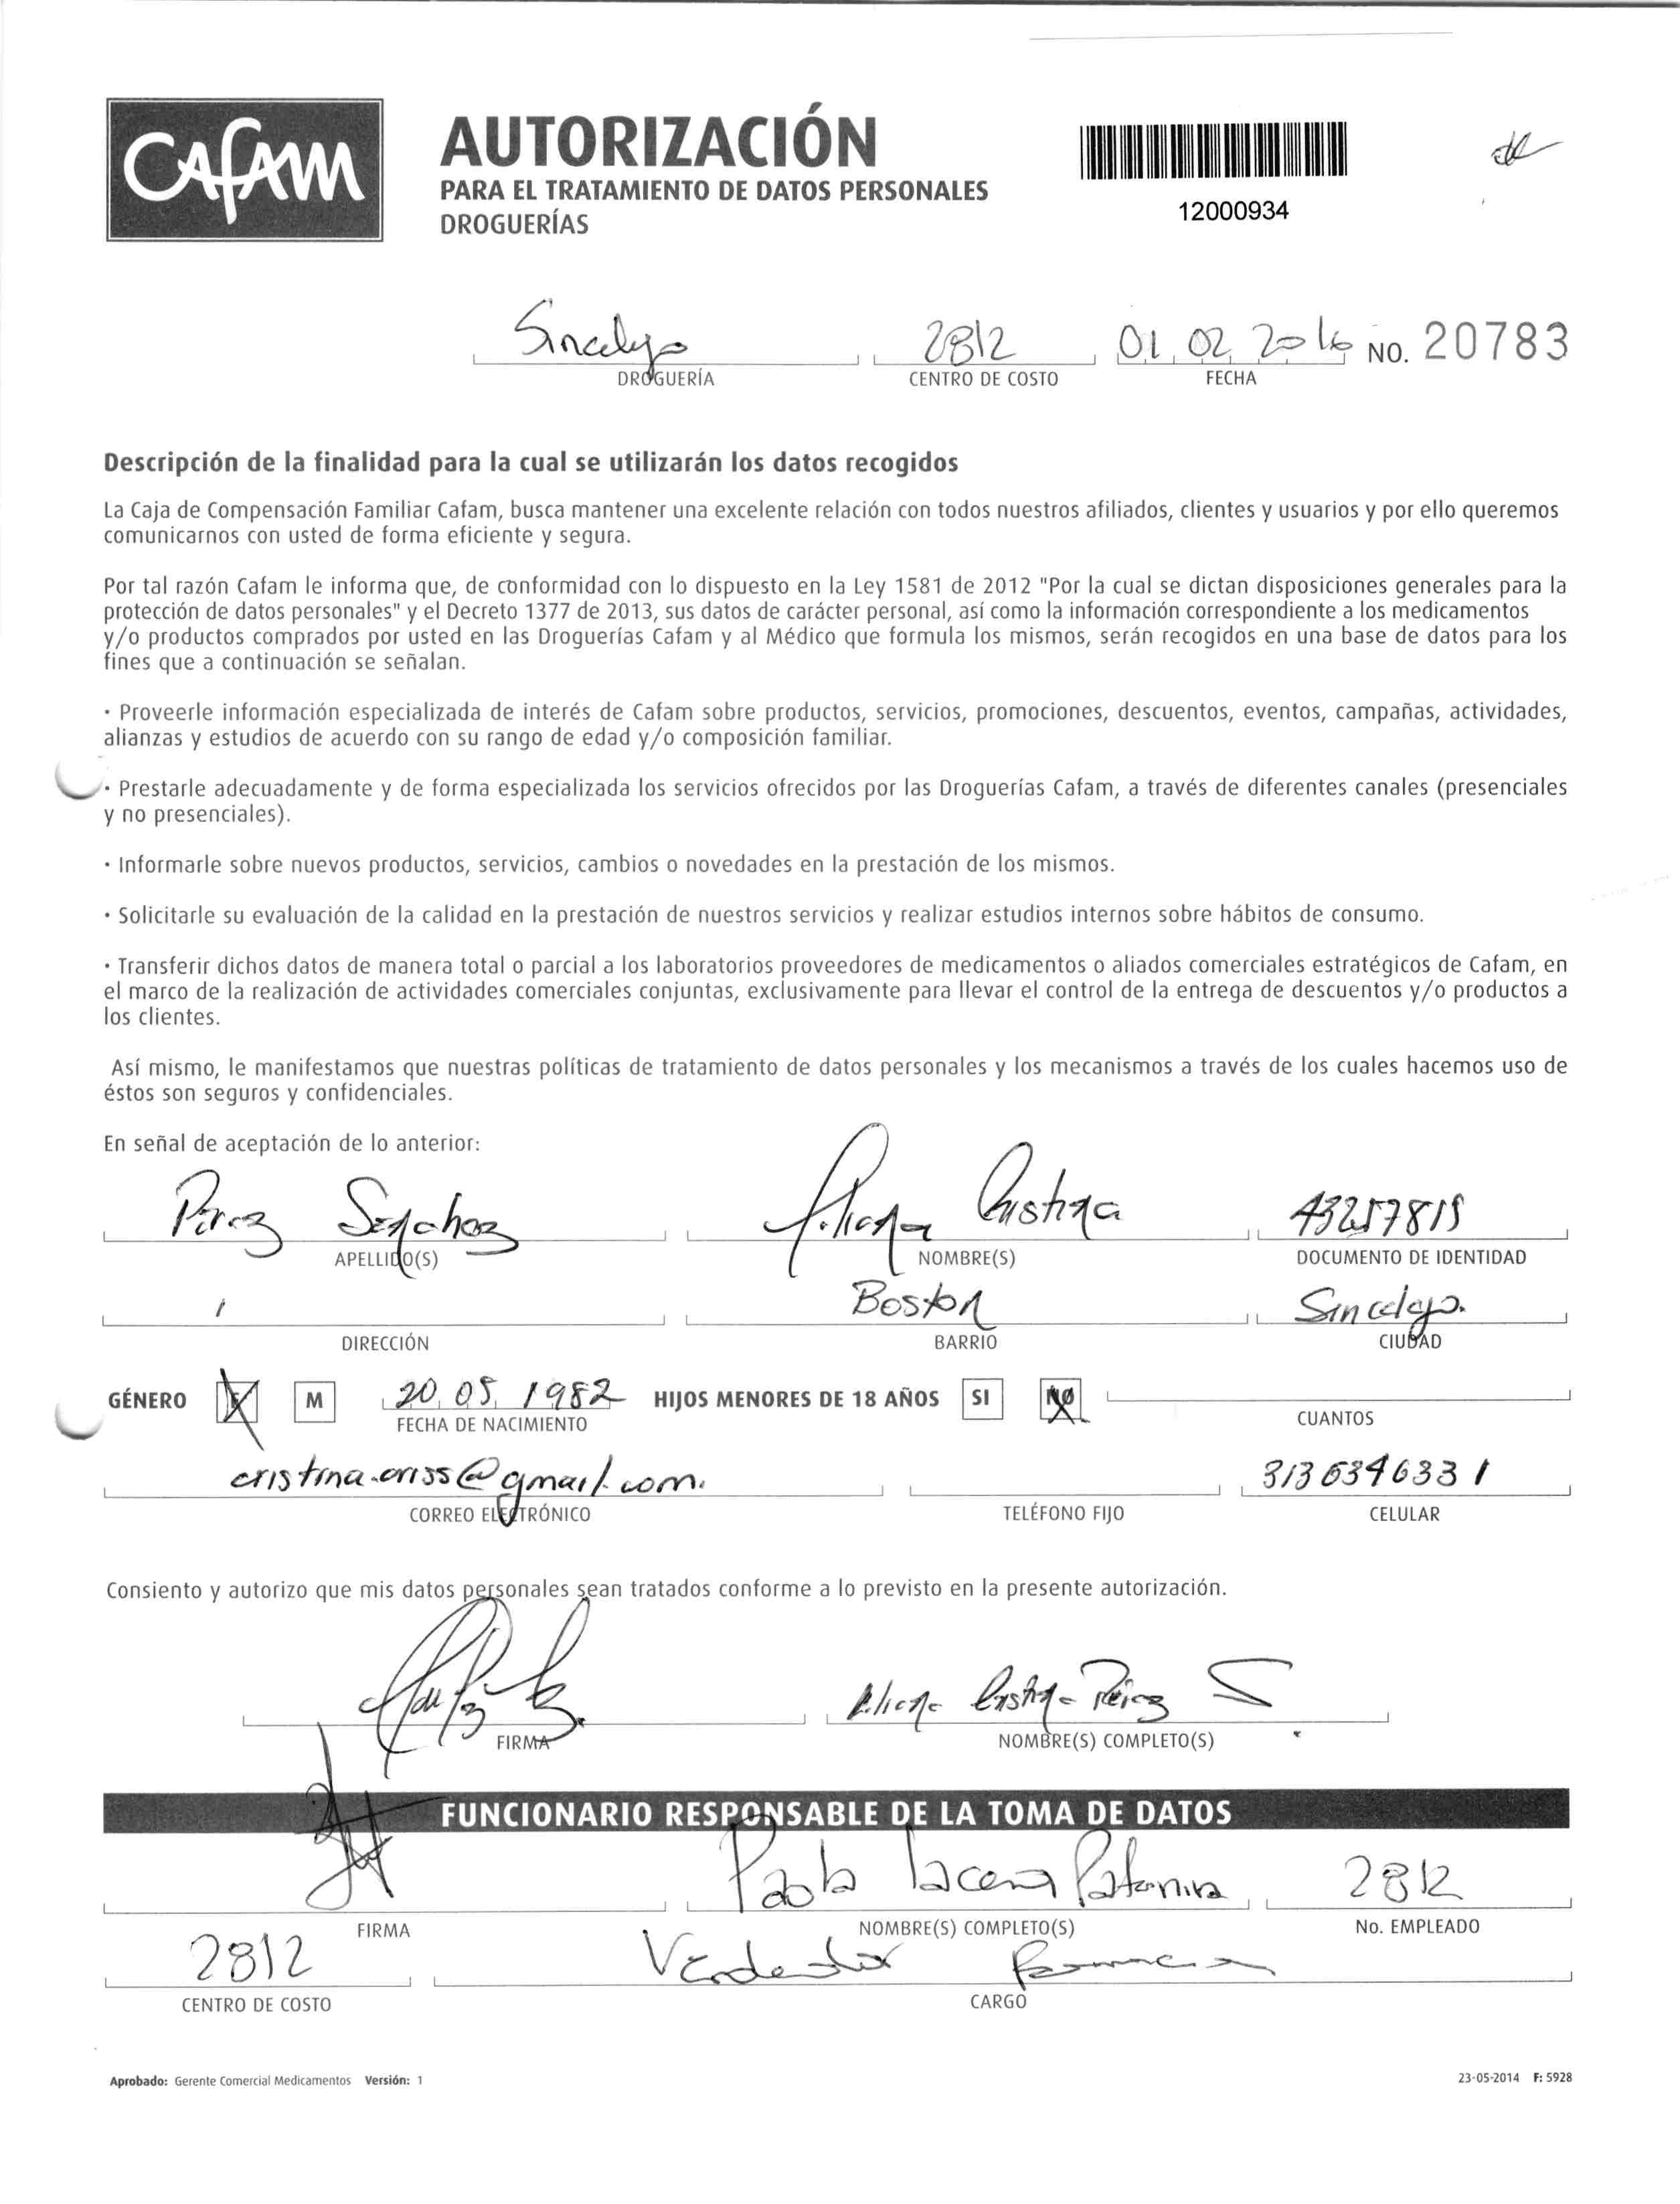 CAFAM
AUTORIZACIÓN
PARA EL TRATAMIENTO DE DATOS PERSONALES
DROGUERÍAS
12000934
Sincelejo 2812 01 02 2016 NO. 20783
DROGUERÍA CENTRO DE COSTO FECHA
Descripción de la finalidad para la cual se utilizarán los datos recogidos
La Caja de Compensación Familiar Cafam, busca mantener una excelente relación con todos nuestros afiliados, clientes y usuarios y por ello queremos
comunicarnos con usted de forma eficiente y segura.
Por tal razón Cafam le informa que, de conformidad con lo dispuesto en la Ley 1581 de 2012 "Por la cual se dictan disposiciones generales para la
protección de datos personales" y el Decreto 1377 de 2013, sus datos de carácter personal, así como la información correspondiente a los medicamentos
y/o productos comprados por usted en las Droguerías Cafam y al Médico que formula los mismos, serán recogidos en una base de datos para los
fines que a continuación se señalan.
· Proveerle información especializada de interés de Cafam sobre productos, servicios, promociones, descuentos, eventos, campañas, actividades,
alianzas y estudios de acuerdo con su rango de edad y/o composición familiar.
· Prestarle adecuadamente y de forma especializada los servicios ofrecidos por las Droguerías Cafam, a través de diferentes canales (presenciales
y no presenciales).
· Informarle sobre nuevos productos, servicios, cambios o novedades en la prestación de los mismos.
· Solicitarle su evaluación de la calidad en la prestación de nuestros servicios y realizar estudios internos sobre hábitos de consumo.
· Transferir dichos datos de manera total o parcial a los laboratorios proveedores de medicamentos o aliados comerciales estratégicos de Cafam, en
el marco de la realización de actividades comerciales conjuntas, exclusivamente para llevar el control de la entrega de descuentos y/o productos a
los clientes.
Así mismo, le manifestamos que nuestras políticas de tratamiento de datos personales y los mecanismos a través de los cuales hacemos uso de
éstos son seguros y confidenciales.
En señal de aceptación de lo anterior:
Pérez Sanchez Cristina
APELLIDO(S) NOMBRE(S) DOCUMENTO DE IDENTIDAD
Boston Sincelejo.
DIRECCIÓN BARRIO CIUDAD
GÉNERO F M 20 05 1982 HIJOS MENORES DE 18 AÑOS SI NO
FECHA DE NACIMIENTO CUANTOS
cristina.criss@gmail.com.
CORREO ELECTRÓNICO TELÉFONO FIJO CELULAR
Consiento y autorizo que mis datos personales sean tratados conforme a lo previsto en la presente autorización.
Cristina Pérez S
FIRMA NOMBRE(S) COMPLETO(S)
FUNCIONARIO RESPONSABLE DE LA TOMA DE DATOS
Paola 2812
FIRMA NOMBRE(S) COMPLETO(S) No. EMPLEADO
2812 Vendedor Farmacia
CENTRO DE COSTO CARGO
Aprobado: Gerente Comercial Medicamentos Versión: 1 23-05-2014 F: 5928